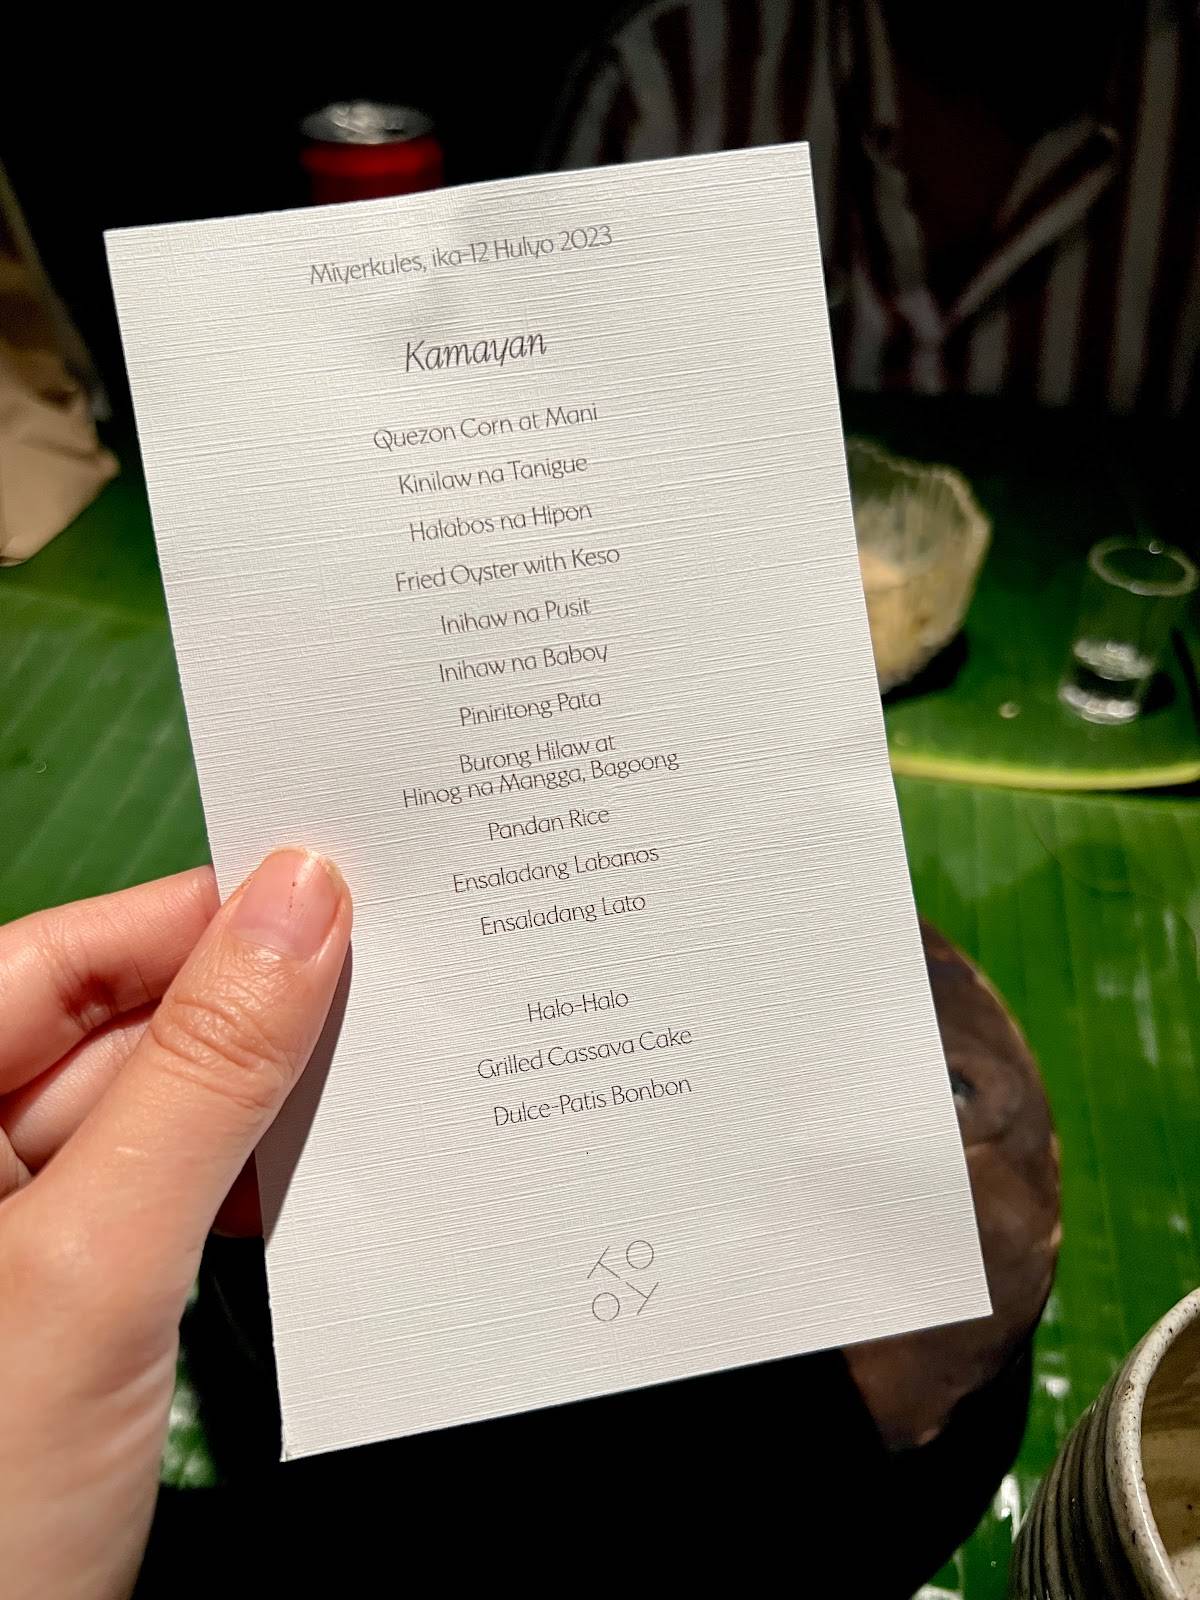 Miyerkules, ika-12 Hulyo 2023
Kamayan
Quezon Corn at Mani
Kinilaw na Tanigue
Halabos na Hipon
Fried Oyster with Keso
Inihaw na Pusit
Inihaw na Baboy
Piniritong Pata
Burong Hilaw at
Hinog na Mangga, Bagoong
Pandan Rice
Ensaladang Labanos
Ensaladang Lato
Halo-Halo
Grilled Cassava Cake
Dulce-Patis Bonbon
TO
OY